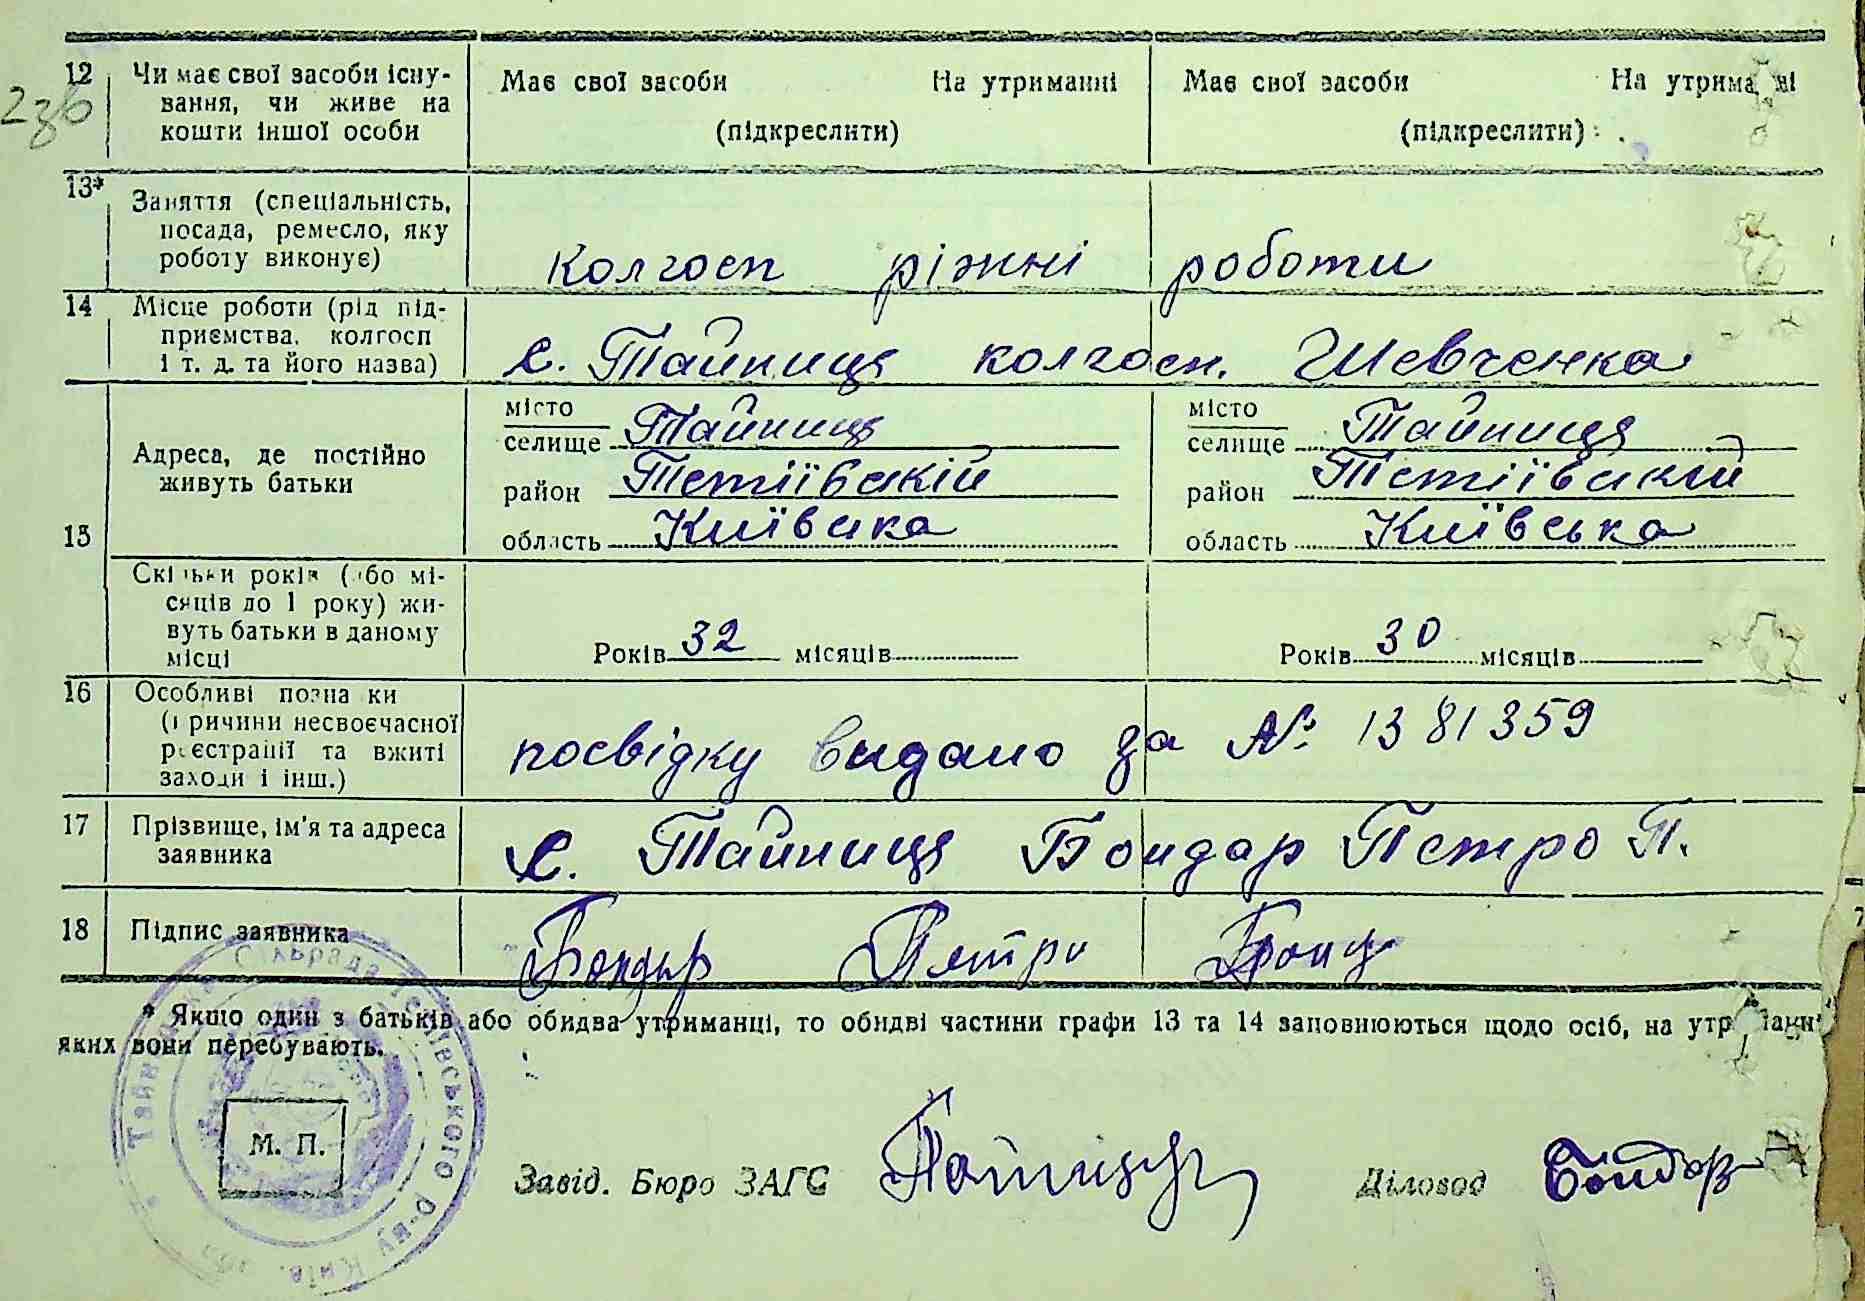 12 Чи має свої засоби існу- Має свої засоби На утриманні Має свої засоби На утриманні
вання, чи живе на
кошти іншої особи (підкреслити) (підкреслити)
236
13* Заняття (спеціальність,
посада, ремесло, яку
роботу виконує) колгосп ріжні роботи
14 Місце роботи (рід під-
приємства, колгосп
і т. д. та його назва) с. Тайниця колгосп. Шевченка
15 Адреса, де постійно
живуть батьки
місто місто
селище Тайниця селище Тайниця
район Тетіївский район Тетіївский
область Київска область Київська
Скільки років (або мі-
сяців до 1 року) жи-
вуть батьки в даному
місці Років 32 місяців Років 30 місяців
16 Особливі познаки
(причини несвоєчасної
реєстрації та вжиті
заходи і інш.) посвідку видано за № 1381359
17 Прізвище, ім'я та адреса
заявника с. Тайниця Бондар Петро П.
18 Підпис заявника Бондар Петро
* Якщо один з батьків або обидва утриманці, то обидві частини графи 13 та 14 заповнюються щодо осіб, на утриманні
яких вони перебувають.
М. П.
Завід. Бюро ЗАГС Діловод Бондар
Сільрада Тетіївського р-ну Київ. обл